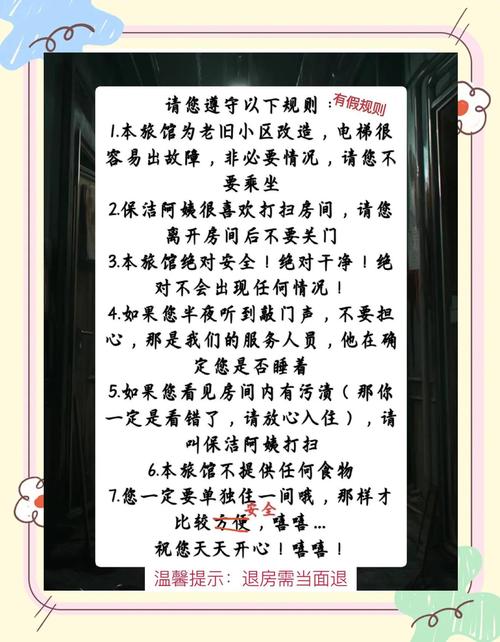 请您遵守以下规则：有假规则
1.本旅馆为老旧小区改造，电梯很
容易出故障，非必要情况，请您不
要乘坐
2.保洁阿姨很喜欢打扫房间，请您
离开房间后不要关门
3.本旅馆绝对安全！绝对干净！绝
对不会出现任何情况！
4.如果您半夜听到敲门声，不要担
心，那是我们的服务人员，他在确
定您是否睡着
5.如果您看见房间内有污渍（那你
一定是看错了，请放心入住），请
叫保洁阿姨打扫
6.本旅馆不提供任何食物
7.您一定要单独住一间哦，那样才
安全
比较方便，嘻嘻...
祝您天天开心！嘻嘻！
温馨提示：退房需当面退